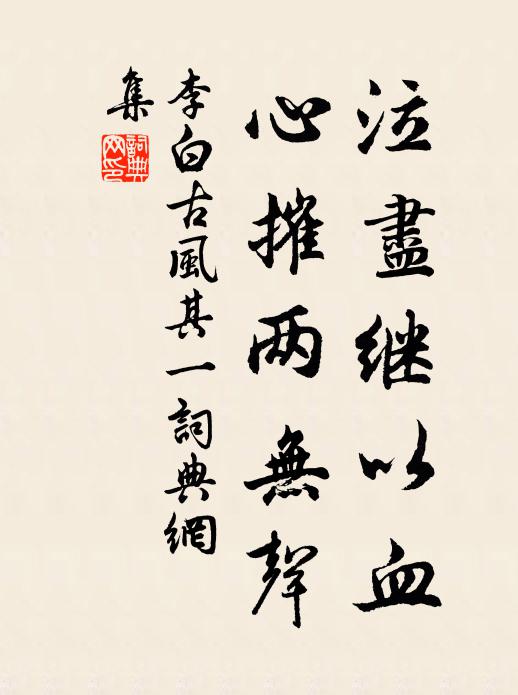 泣盡继以血
心摧两無聲
李白古風其一詞典網
集
詞典網印